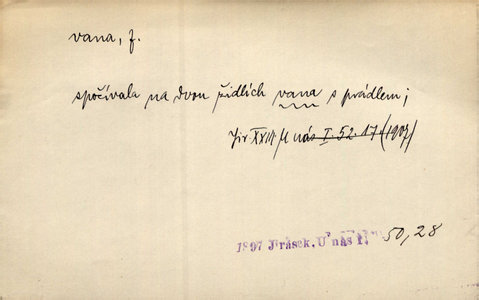 vana, f.
spočívala na dvou židlích vana s prádlem;
Jir. XXIII U nás I. 52. 17 (1907)
1897 Jirásek, U nás I. 50, 28